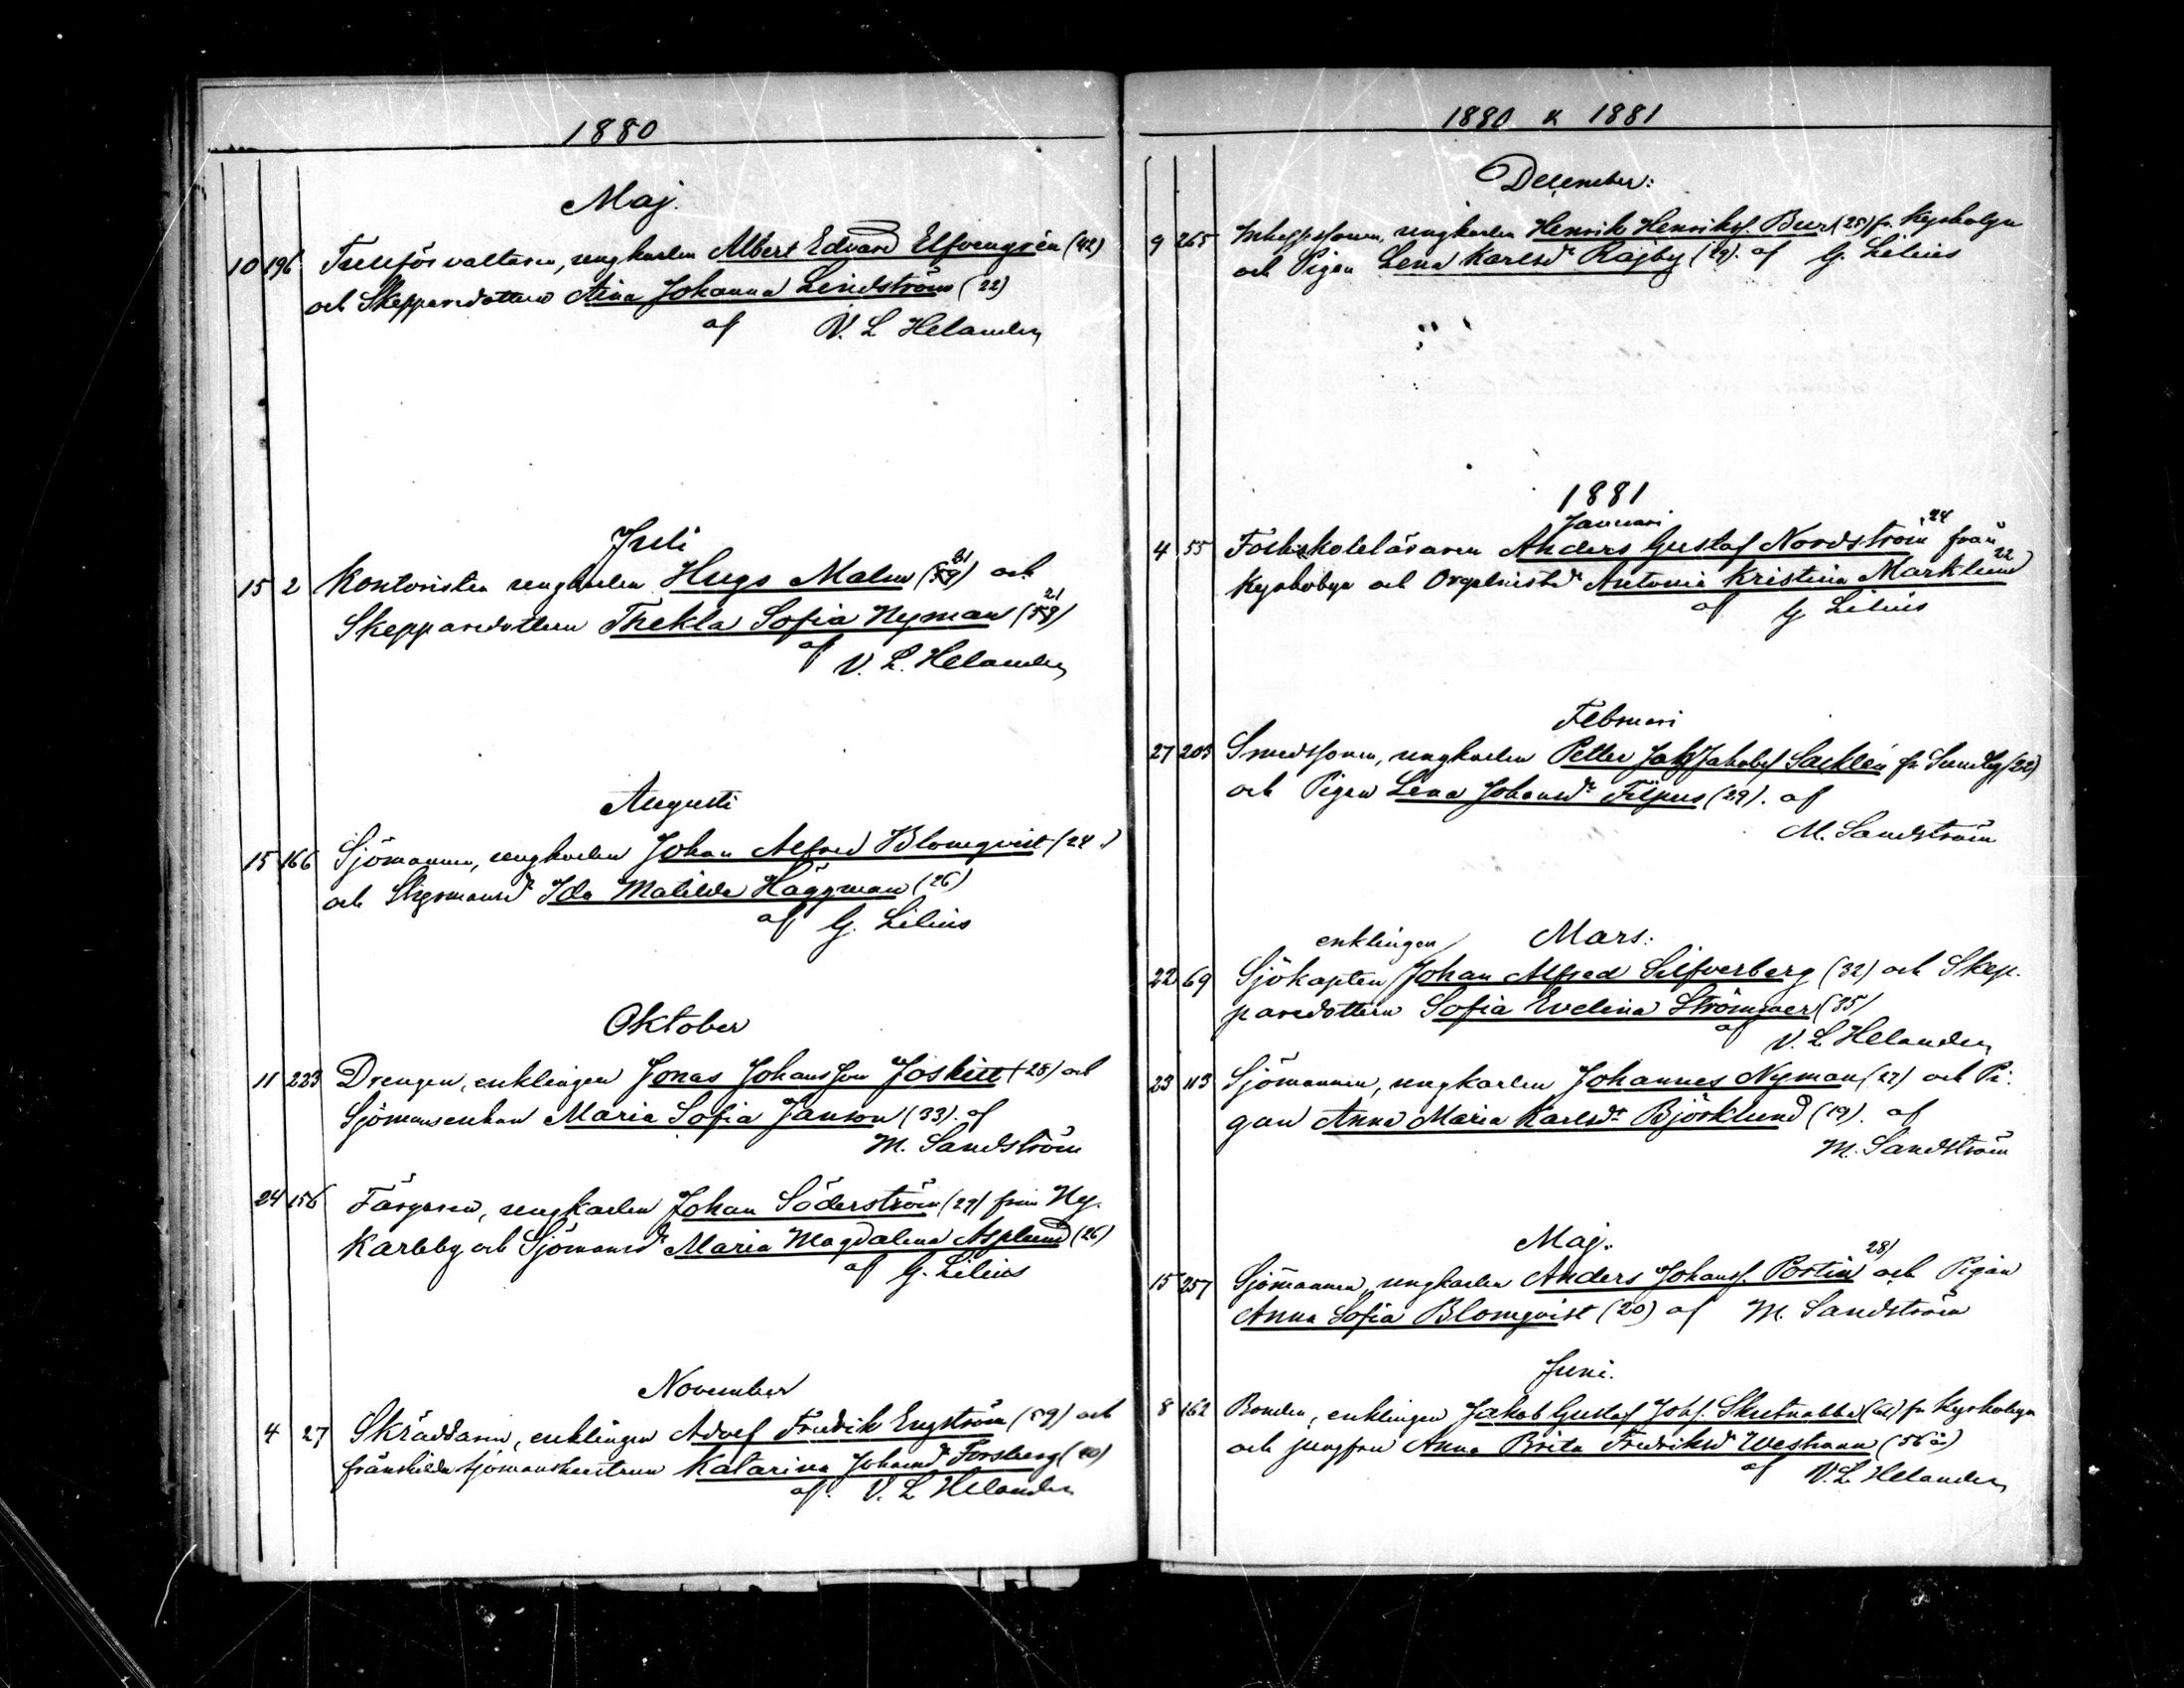 1880
Maj.
10 196 ungkarlen Albert Edvard Elfvengrén (42)
och Skepparedottren Aina Johanna Lindström (22)
af V. L Helander
Juli
15 2 Kontoristen ungkarlen Hugo Malm (21) och
Skepparedottren Thekla Sofia Nyman (21)
af V. L. Helander
Augusti
15 166 Sjömannen, ungkarlen Johan Alfred Blomqvist (24)
och Ida Matilda Häggman (26)
af G. Lilius
Oktober
11 223 Drengen, enklingen Jonas Johansson (28) och
Sjömansenkan Maria Sofia Janson (33). af
M. Sandström
24 156 Färgaren, ungkarlen Johan Söderström (29) från Ny-
karleby och Sjömansdr Maria Magdalena Asplund (26)
af G. Lilius
November
4 27 Skräddaren, enklingen Adolf Fredrik Engström (59) och
frånskilda sjömanshustrun Katarina Johansdr Forsberg (40)
af. V. L Helander
1880 & 1881
December:
9 265 ungkarlen Henrik Henrikss. Bur (25) fr. Kyrkobyn
och Pigan Lena Karlsdr Rajby (29). af G. Lilius
1881
Januari
24
4 55 Folkskoleläraren Anders Gustaf Nordström från
22
Kyrkobyn och Antonia Kristina Marklund
af G Lilius
Februari
27 203 Smedssonen, ungkarlen Petter Jakobss Sacklén fr Sundby (22)
och Pigan Lena Johansdr Filpus (29). af
M. Sandström
Mars:
enklingen
22 69 Sjökapten Johan Alfred Silfverberg (32) och Skep-
paredottren Sofia Evelina Strömmer (35)
af V. L Helander
23 113 Sjömannen, ungkarlen Johannes Nyman (22) och Pi-
gan Anna Maria Karlsdr Björklund (19). af
M. Sandström
Maj:
28)
15 257 Sjömannen, ungkarlen Anders Johanss. Portin och Pigan
Anna Sofia Blomqvist (20) af M. Sandström
Juni.
8 162 Bonden, enklingen Jakob Gustaf Johs. Skutnabba fr Kyrkobyn
och jungfrun Anna Brita Fredriksdr Westman (56 år)
af V. L. Helander